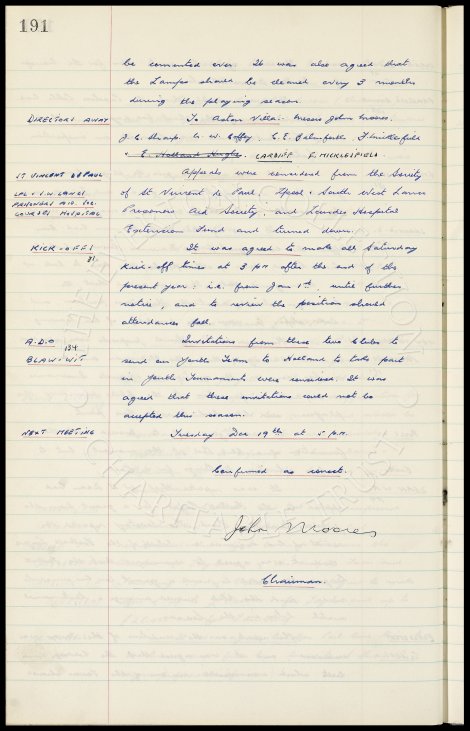 191
be cemented over. It was also agreed that
the Lamps should be cleaned every 3 months
during the playing season.
DIRECTORS AWAY To Aston Villa: Messrs John Moores,
J. C. Sharp. W. W. Coffey, C. E. Balmforth F. Micklefield
& E. Holland Hughes. CARDIFF F. MICKLEFIELD.
ST VINCENT DE PAUL Appeals were considered from the Society
L'POL & S.W. LANCS of St Vincent de Paul, L'pool & South West Lancs
PRISONERS AID SOC. Prisoners Aid Society, and Lourdes Hospital
LOURDES HOSPITAL Extension Fund and turned down.
KICK-OFFS It was agreed to make all Saturday
81. Kick-off times at 3 p.m. after the end of the
present year: i.e. from Jan 1st. until further
notice, and to review the position should
attendances fall.
A.D.O 134 Invitations from these two Clubs to
BLAUW WIT send our Youth Team to Holland to take part
in Youth Tournaments were considered. It was
agreed that these invitations could not be
accepted this season.
NEXT MEETING Tuesday Dec 19th at 5 p.m.
Confirmed as correct.
John Moores
Chairman.
CHARITABLE TRUST